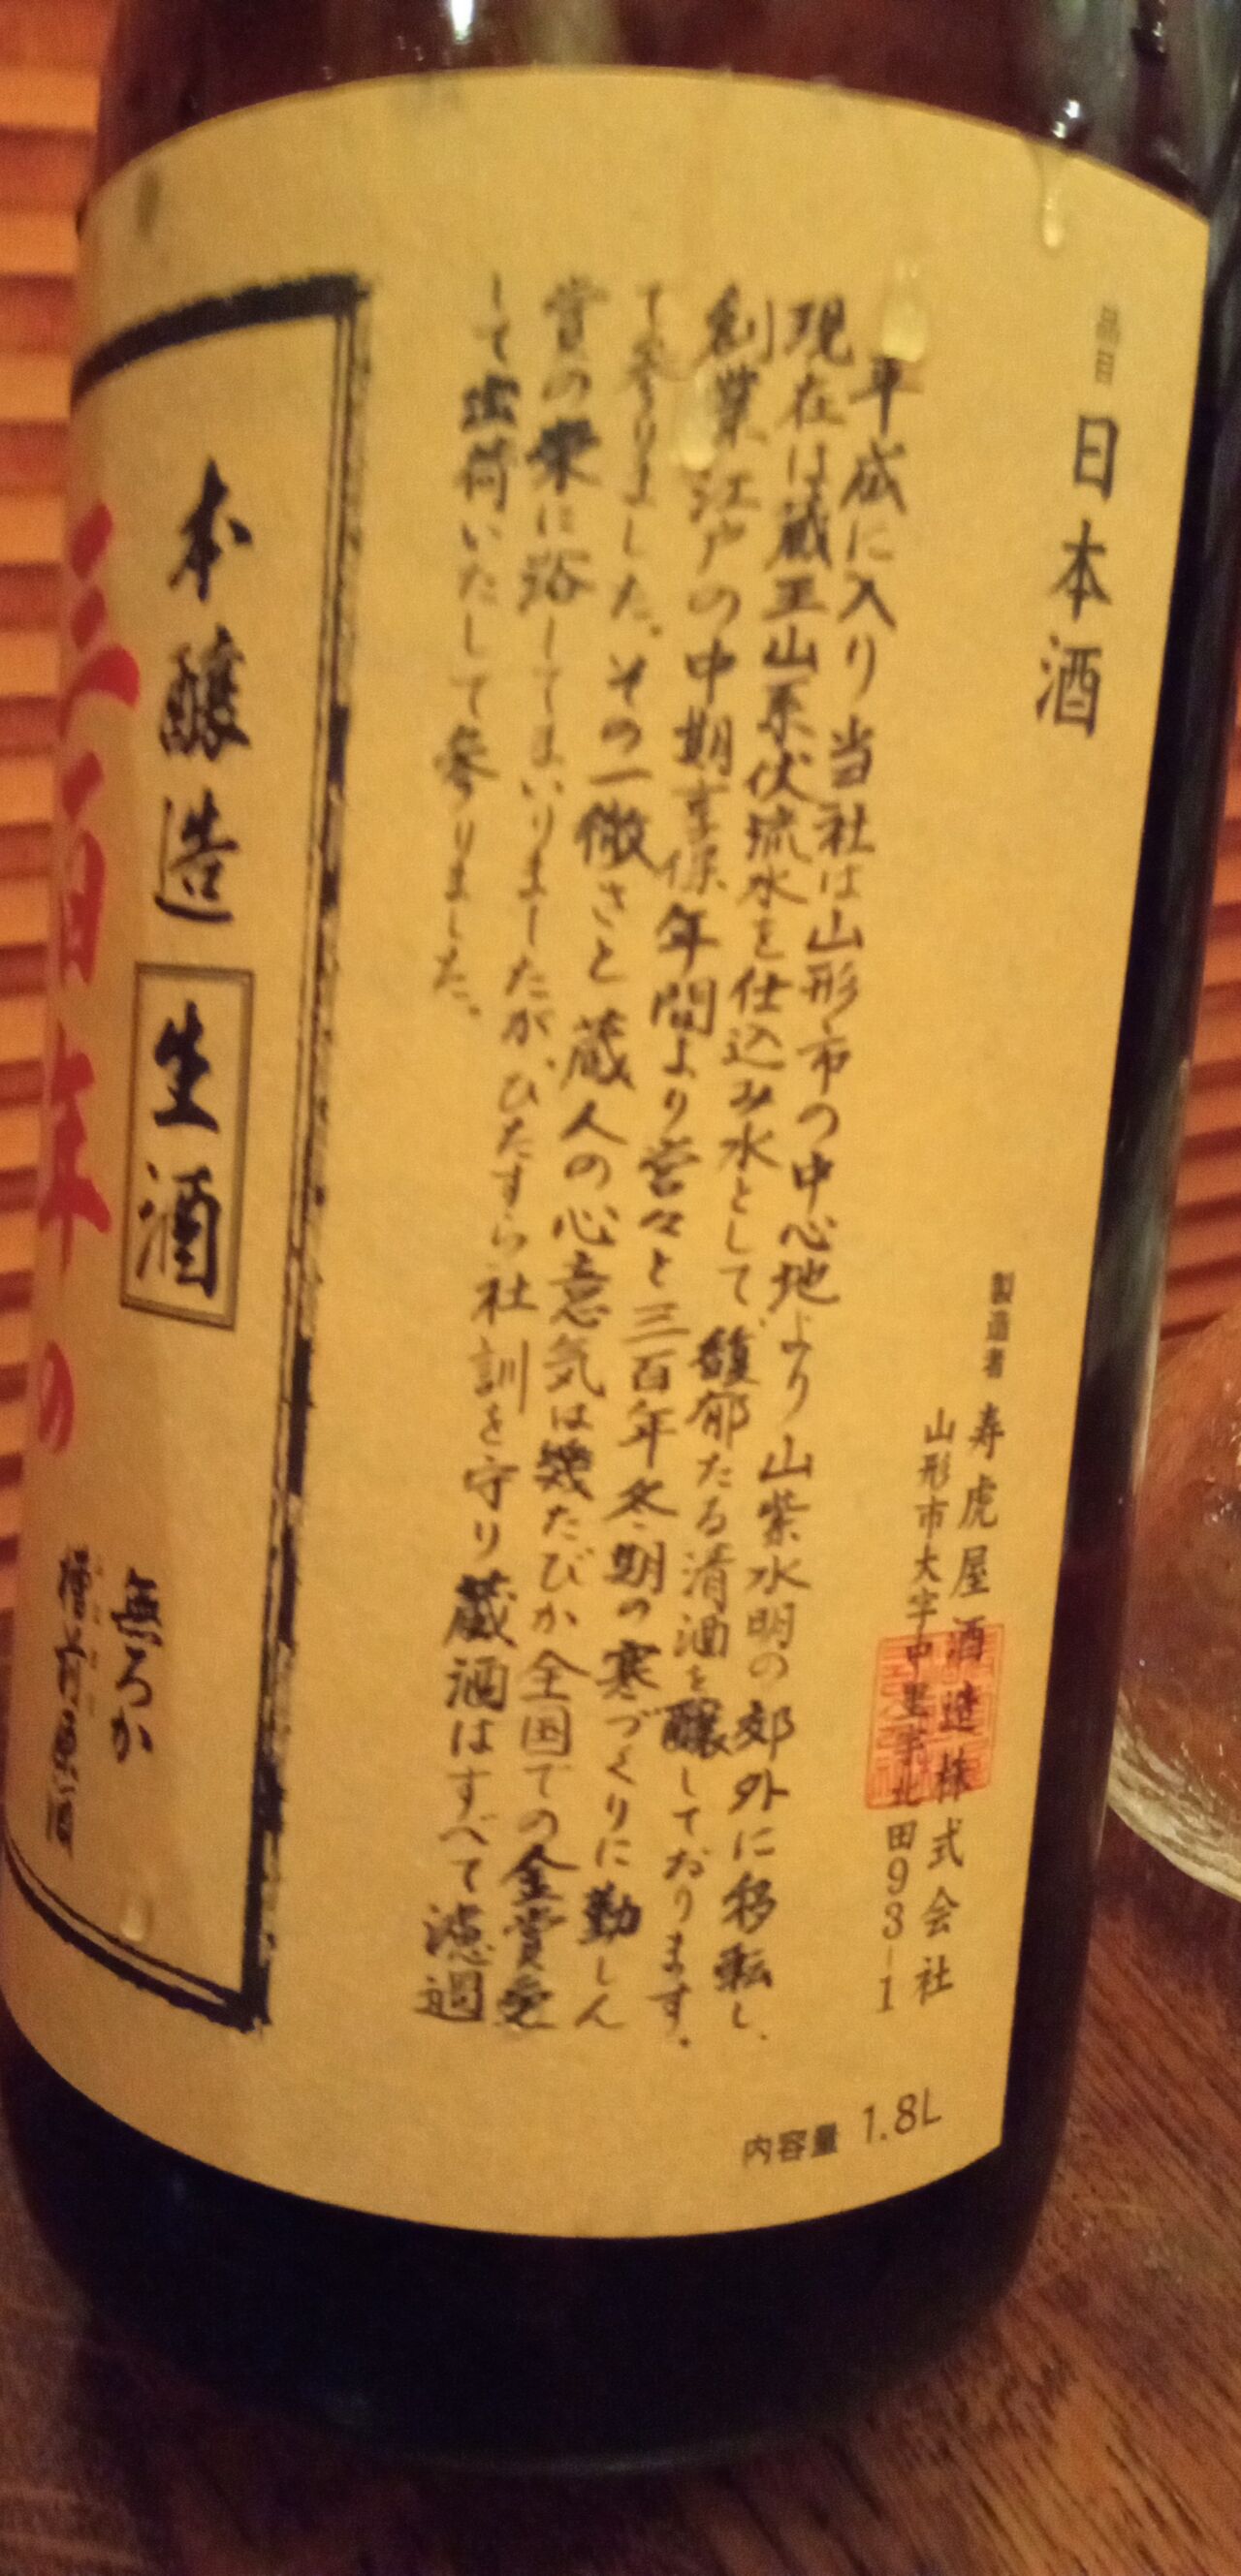 品目 日本酒
製造者 寿虎屋酒造株式会社
山形市大字中里字北田93-1
内容量 1.8L
平成に入り当社は山形市の中心地より山紫水明の郊外に移転し、
現在は蔵王山系伏流水を仕込み水として、馥郁たる清酒を醸しております。
創業江戸の中期享保年間より営々と三百年冬期の寒づくりに勤しん
で参りました。その一徹さと蔵人の心意気は幾たびか全国での金賞受
賞の栄に浴してまいりましたが、ひたすら社訓を守り蔵酒はすべて濾過
して出荷いたして参りました。
本醸造 生酒
三百年の
無ろか
槽前原酒